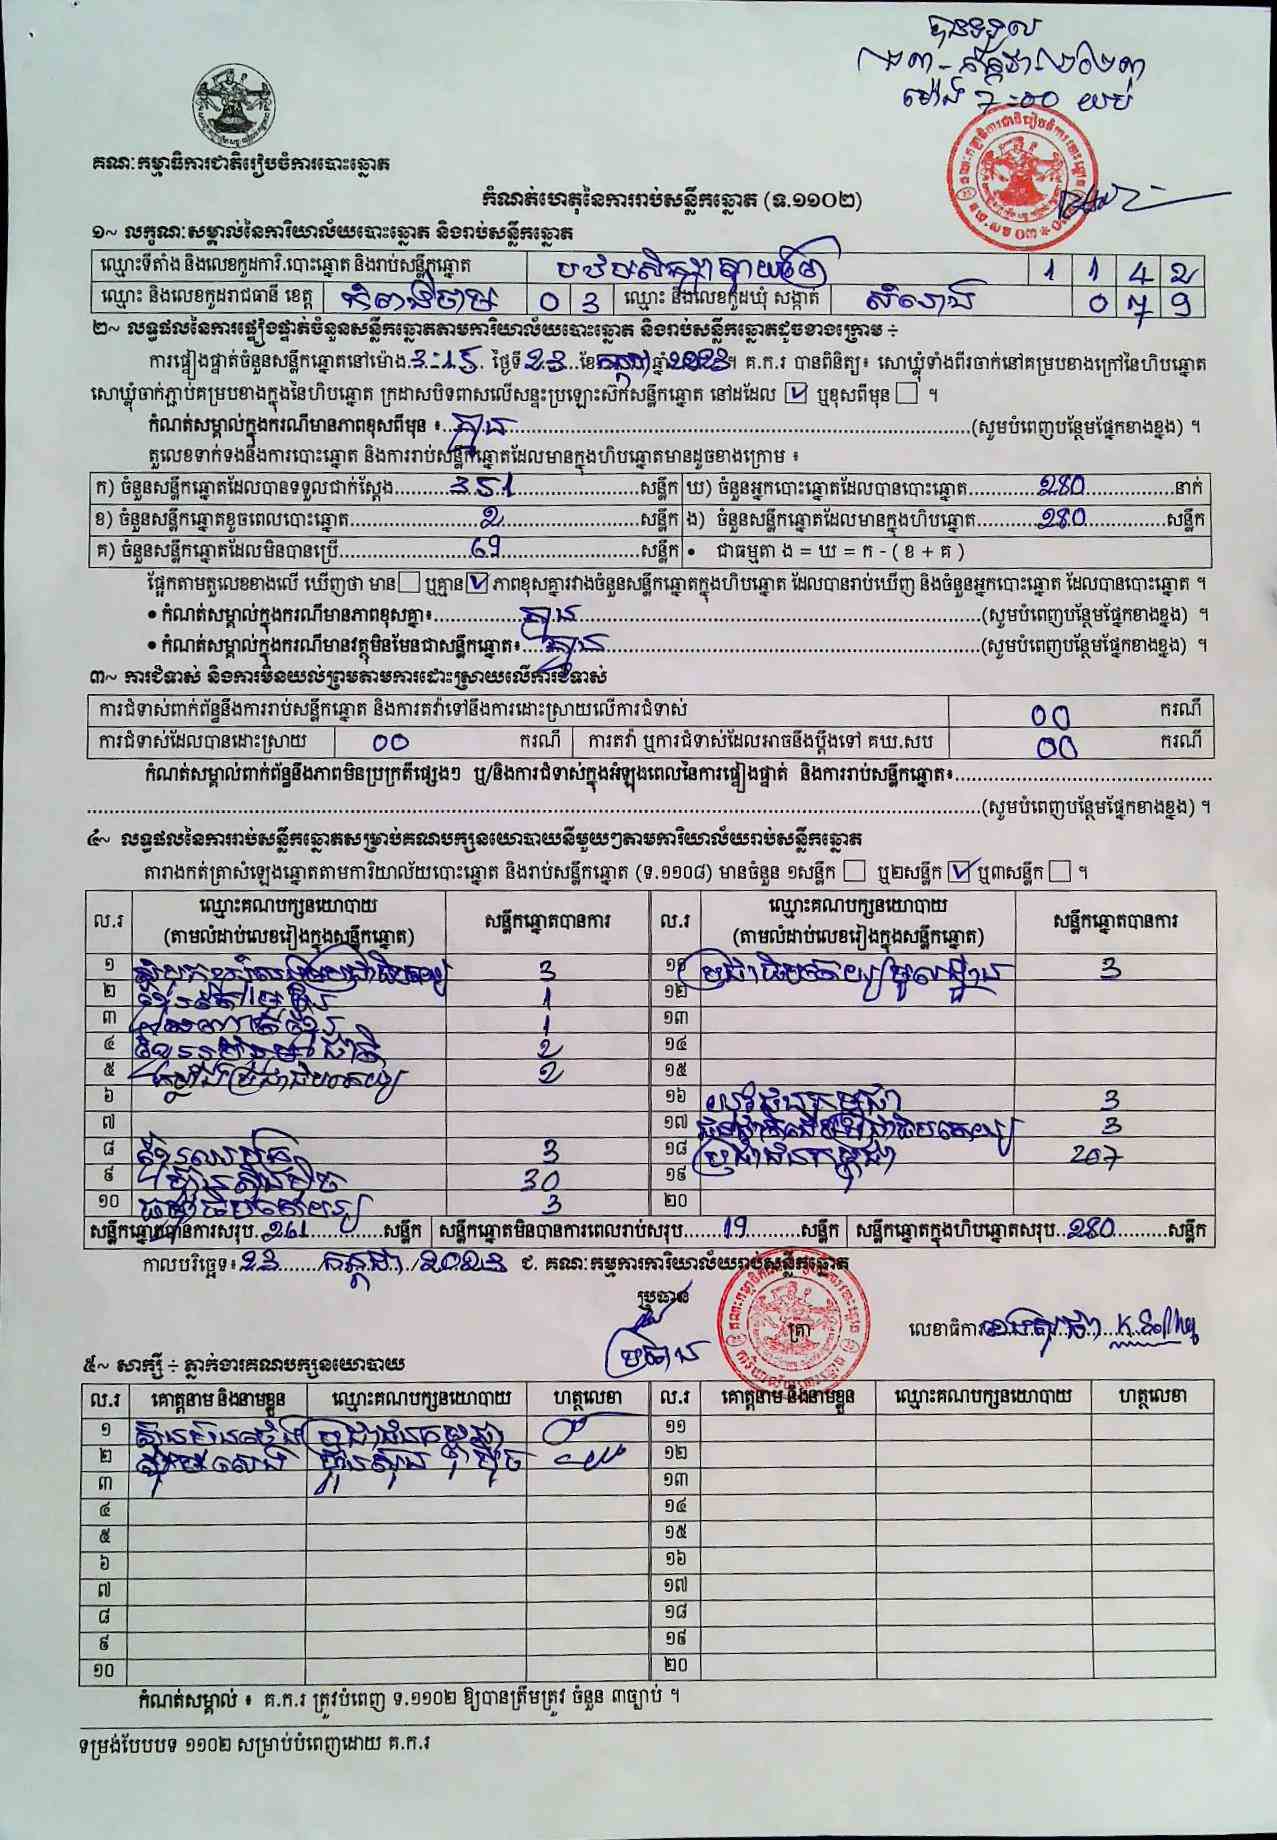 បានទទួល
២៣-កក្កដា-២០២៣
ម៉ោង 7:00 យប់
គណៈកម្មាធិការជាតិរៀបចំការបោះឆ្នោត
កំណត់ហេតុនៃការរាប់សន្លឹកឆ្នោត (ទ.១១០២)
១~ លក្ខណៈសម្គាល់នៃការិយាល័យបោះឆ្នោត និងរាប់សន្លឹកឆ្នោត
ឈ្មោះទីតាំង និងលេខកូដការិ.បោះឆ្នោត និងរាប់សន្លឹកឆ្នោត បឋមសិក្សាស្វាយ 1 1 4 2
ឈ្មោះ និងលេខកូដរាជធានី ខេត្ត កំពង់ចាម 0 3 ឈ្មោះ និងលេខកូដឃុំ សង្កាត់ សំរោង 0 7 9
២~ លទ្ធផលនៃការផ្ទៀងផ្ទាត់ចំនួនសន្លឹកឆ្នោតតាមការិយាល័យបោះឆ្នោត និងរាប់សន្លឹកឆ្នោតដូចខាងក្រោម ÷
ការផ្ទៀងផ្ទាត់ចំនួនសន្លឹកឆ្នោតនៅម៉ោង 3:15 ថ្ងៃទី 23 ខែ កក្កដា ឆ្នាំ 2023 ។ គ.ក.រ បានពិនិត្យ៖ សោឃ្លុំទាំងពីរចាក់នៅគម្របខាងក្រៅនៃហិបឆ្នោត
សោឃ្លុំចាក់ភ្ជាប់គម្របខាងក្នុងនៃហិបឆ្នោត ក្រដាសបិទពាសលើសន្ទះប្រឡោះស៊កសន្លឹកឆ្នោត នៅដដែល ☑ ឬខុសពីមុន ☐ ។
កំណត់សម្គាល់ក្នុងករណីមានភាពខុសពីមុន ៖ គ្មាន (សូមបំពេញបន្ថែមផ្នែកខាងខ្នង) ។
តួលេខទាក់ទងនឹងការបោះឆ្នោត និងការរាប់សន្លឹកឆ្នោតដែលមានក្នុងហិបឆ្នោតមានដូចខាងក្រោម ៖
ក) ចំនួនសន្លឹកឆ្នោតដែលបានទទួលជាក់ស្តែង 351 សន្លឹក ឃ) ចំនួនអ្នកបោះឆ្នោតដែលបានបោះឆ្នោត 280 នាក់
ខ) ចំនួនសន្លឹកឆ្នោតខូចពេលបោះឆ្នោត 2 សន្លឹក ង) ចំនួនសន្លឹកឆ្នោតដែលមានក្នុងហិបឆ្នោត 280 សន្លឹក
គ) ចំនួនសន្លឹកឆ្នោតដែលមិនបានប្រើ 69 សន្លឹក • ជាធម្មតា ង = ឃ = ក - ( ខ + គ )
ផ្អែកតាមតួលេខខាងលើ ឃើញថា មាន ☐ ឬគ្មាន ☑ ភាពខុសគ្នារវាងចំនួនសន្លឹកឆ្នោតក្នុងហិបឆ្នោត ដែលបានរាប់ឃើញ និងចំនួនអ្នកបោះឆ្នោត ដែលបានបោះឆ្នោត ។
• កំណត់សម្គាល់ក្នុងករណីមានភាពខុសគ្នា៖ គ្មាន (សូមបំពេញបន្ថែមផ្នែកខាងខ្នង) ។
• កំណត់សម្គាល់ក្នុងករណីមានវត្ថុមិនមែនជាសន្លឹកឆ្នោត៖ គ្មាន (សូមបំពេញបន្ថែមផ្នែកខាងខ្នង) ។
៣~ ការជំទាស់ និងការមិនយល់ព្រមតាមការដោះស្រាយលើការជំទាស់
ការជំទាស់ពាក់ព័ន្ធនឹងការរាប់សន្លឹកឆ្នោត និងការតវ៉ាទៅនឹងការដោះស្រាយលើការជំទាស់ 00 ករណី
ការជំទាស់ដែលបានដោះស្រាយ 00 ករណី ការតវ៉ា ឬការជំទាស់ដែលអាចនឹងប្តឹងទៅ គឃ.សប 00 ករណី
កំណត់សម្គាល់ពាក់ព័ន្ធនឹងភាពមិនប្រក្រតីផ្សេងៗ ឬ/និងការជំទាស់ក្នុងអំឡុងពេលនៃការផ្ទៀងផ្ទាត់ និងការរាប់សន្លឹកឆ្នោត៖
(សូមបំពេញបន្ថែមផ្នែកខាងខ្នង) ។
៤~ លទ្ធផលនៃការរាប់សន្លឹកឆ្នោតសម្រាប់គណបក្សនយោបាយនីមួយៗតាមការិយាល័យរាប់សន្លឹកឆ្នោត
តារាងកត់ត្រាសំឡេងឆ្នោតតាមការិយាល័យបោះឆ្នោត និងរាប់សន្លឹកឆ្នោត (ទ.១១០៨) មានចំនួន ១សន្លឹក ☐ ឬ២សន្លឹក ☑ ឬ៣សន្លឹក ☐ ។
ល.រ ឈ្មោះគណបក្សនយោបាយ (តាមលំដាប់លេខរៀងក្នុងសន្លឹកឆ្នោត) សន្លឹកឆ្នោតបានការ ល.រ ឈ្មោះគណបក្សនយោបាយ (តាមលំដាប់លេខរៀងក្នុងសន្លឹកឆ្នោត) សន្លឹកឆ្នោតបានការ
១ ប្រជាធិបតេយ្យ 3 ១១ ប្រជាធិបតេយ្យមូលដ្ឋាន 3
២ 1 ១២
៣ 1 ១៣
៤ ជាតិ 2 ១៤
៥ ប្រជាធិបតេយ្យ 2 ១៥
៦ ១៦ យុវជនកម្ពុជា 3
៧ ១៧ ប្រជាធិបតេយ្យ 3
៨ 3 ១៨ ប្រជាជនកម្ពុជា 207
៩ ហ៊្វុនស៊ិនប៉ិច 30 ១៩
១០ ធម្មាធិបតេយ្យ 3 ២០
សន្លឹកឆ្នោតបានការសរុប 261 សន្លឹក សន្លឹកឆ្នោតមិនបានការពេលរាប់សរុប 19 សន្លឹក សន្លឹកឆ្នោតក្នុងហិបឆ្នោតសរុប 280 សន្លឹក
កាលបរិច្ឆេទ៖ 23 / កក្កដា / 2023 ជ. គណៈកម្មការការិយាល័យរាប់សន្លឹកឆ្នោត
ប្រធាន
ត្រា
លេខាធិការ
៥~ សាក្សី ÷ ភ្នាក់ងារគណបក្សនយោបាយ
ល.រ គោត្តនាម និងនាមខ្លួន ឈ្មោះគណបក្សនយោបាយ ហត្ថលេខា ល.រ គោត្តនាម និងនាមខ្លួន ឈ្មោះគណបក្សនយោបាយ ហត្ថលេខា
១ ប្រជាជនកម្ពុជា ១១
២ ហ៊្វុនស៊ិនប៉ិច ១២
៣ ១៣
៤ ១៤
៥ ១៥
៦ ១៦
៧ ១៧
៨ ១៨
៩ ១៩
១០ ២០
កំណត់សម្គាល់ ៖ គ.ក.រ ត្រូវបំពេញ ទ.១១០២ ឱ្យបានត្រឹមត្រូវ ចំនួន ៣ច្បាប់ ។
ទម្រង់បែបបទ ១១០២ សម្រាប់បំពេញដោយ គ.ក.រ